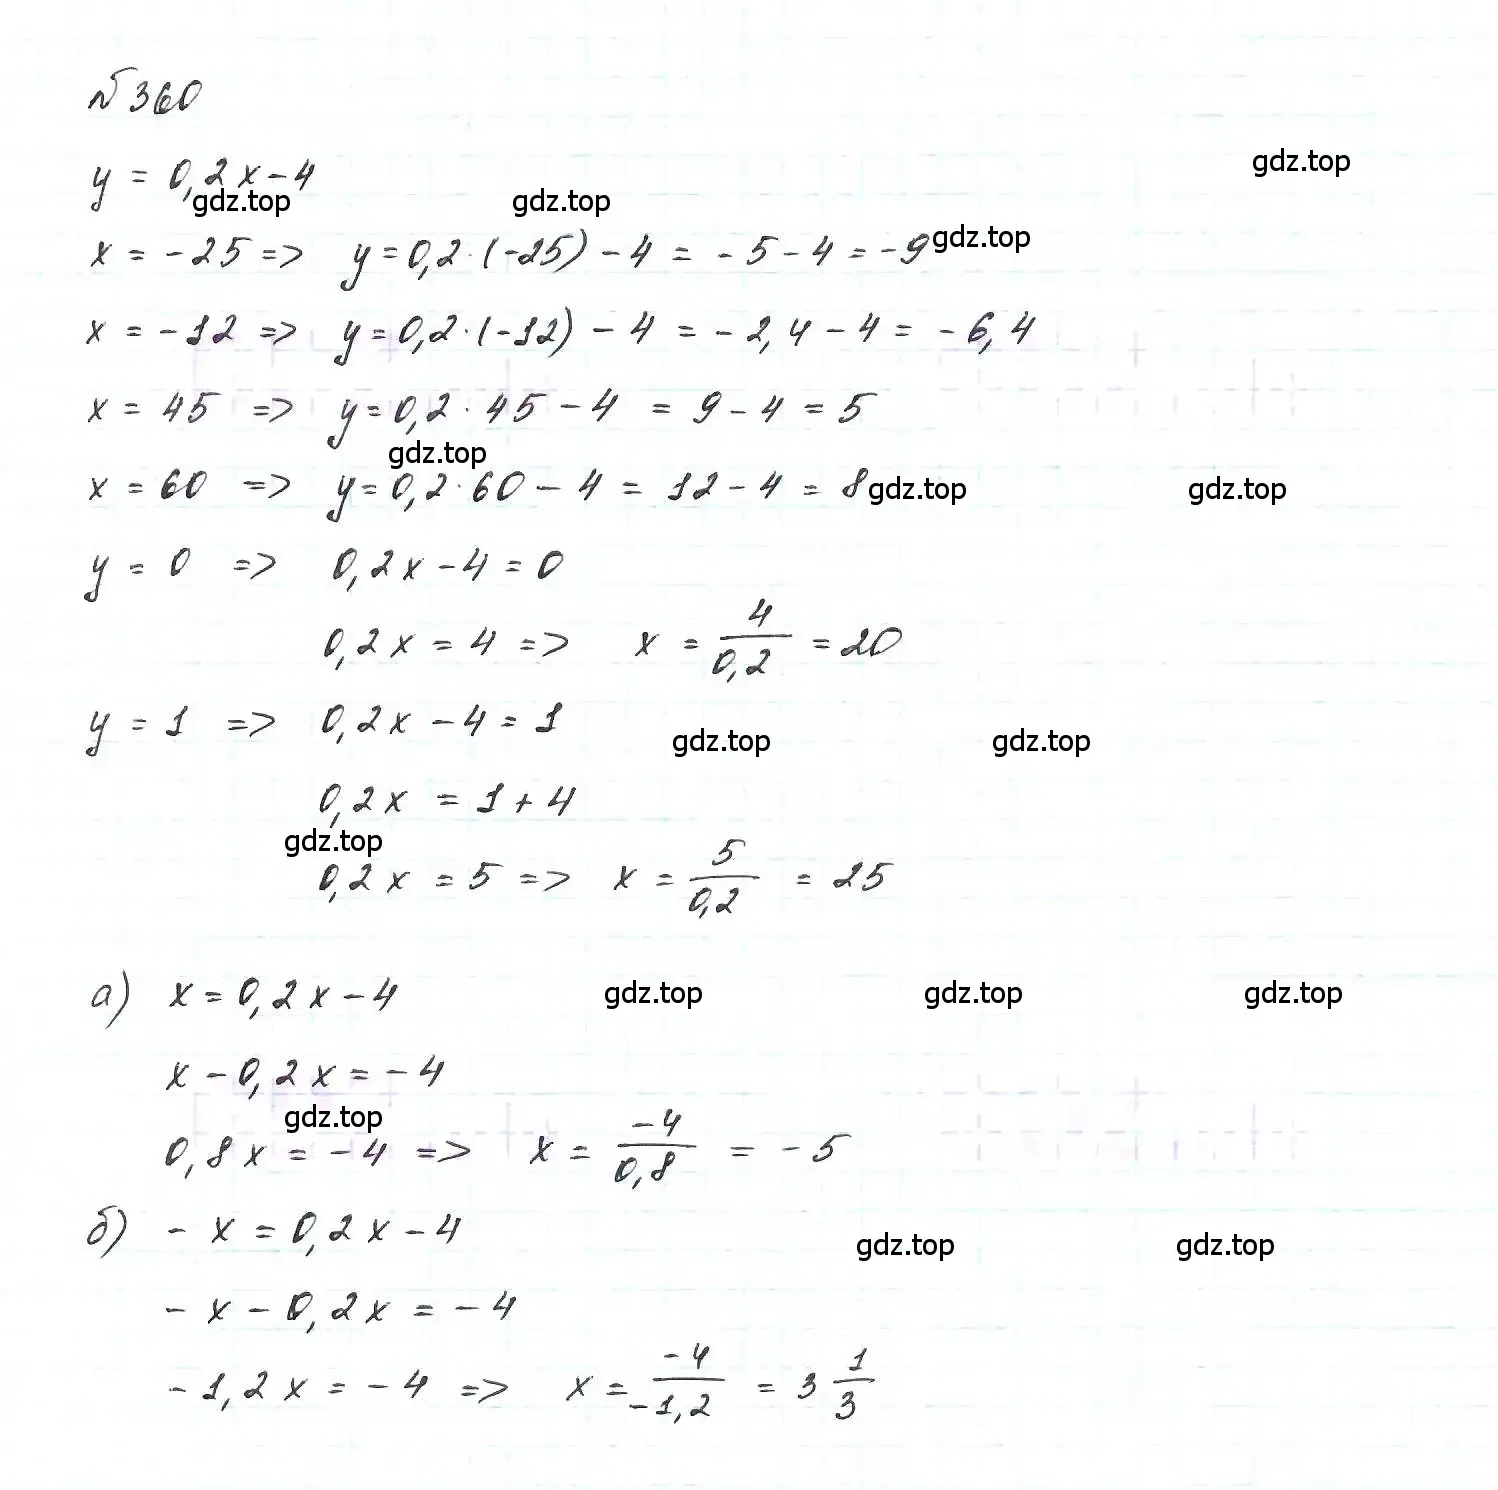 №360
gdz.top
y = 0,2x - 4
gdz.top gdz.top
x = -25 => y = 0,2 · (-25) - 4 = -5 - 4 = -9 gdz.top
x = -12 => y = 0,2 · (-12) - 4 = -2,4 - 4 = -6,4
x = 45 => y = 0,2 · 45 - 4 = 9 - 4 = 5
gdz.top
x = 60 => y = 0,2 · 60 - 4 = 12 - 4 = 8 gdz.top gdz.top
y = 0 => 0,2x - 4 = 0
0,2x = 4 => x = 4/0,2 = 20
y = 1 => 0,2x - 4 = 1
gdz.top gdz.top
0,2x = 1 + 4
gdz.top
0,2x = 5 => x = 5/0,2 = 25
а) x = 0,2x - 4 gdz.top gdz.top gdz.top
x - 0,2x = -4
gdz.top
0,8x = -4 => x = -4/0,8 = -5
б) -x = 0,2x - 4
gdz.top gdz.top
-x - 0,2x = -4
-1,2x = -4 => x = -4/-1,2 = 3 1/3